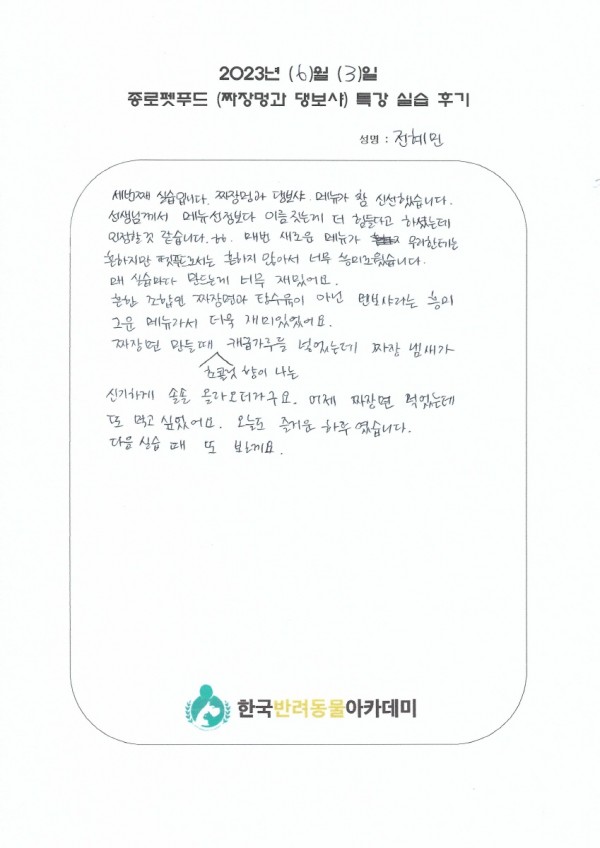 2023년 (6)월 (3)일
종로펫푸드 (짜장멍과 댕보샤) 특강 실습 후기
성명 : 전혜민
세번째 실습입니다. 짜장멍과 댕보샤. 메뉴가 참 신선했습니다.
선생님께서 메뉴선정보다 이름짓는게 더 힘들다고 하셨는데
인정할 것 같습니다.ㅎㅎ. 매번 새로운 메뉴가 우리한테는
흔하지만 펫푸드로서는 흔하지 않아서 너무 흥미로웠습니다.
매 실습마다 만드는게 너무 재밌어요.
흔한 조합인 짜장면와 탕수육이 아닌 멘보샤라는 흥미
로운 메뉴가서 더욱 재미있었어요.
짜장면 만들때 캐롭가루를 넣었는데 짜장 냄새가
초콜릿 향이 나는
신기하게 솔솔 올라오더가구요. 어제 짜장면 먹었는데
또 먹고 싶었어요. 오늘도 즐거운 하루 였습니다.
다음 실습 때 또 보께요.
한국반려동물아카데미